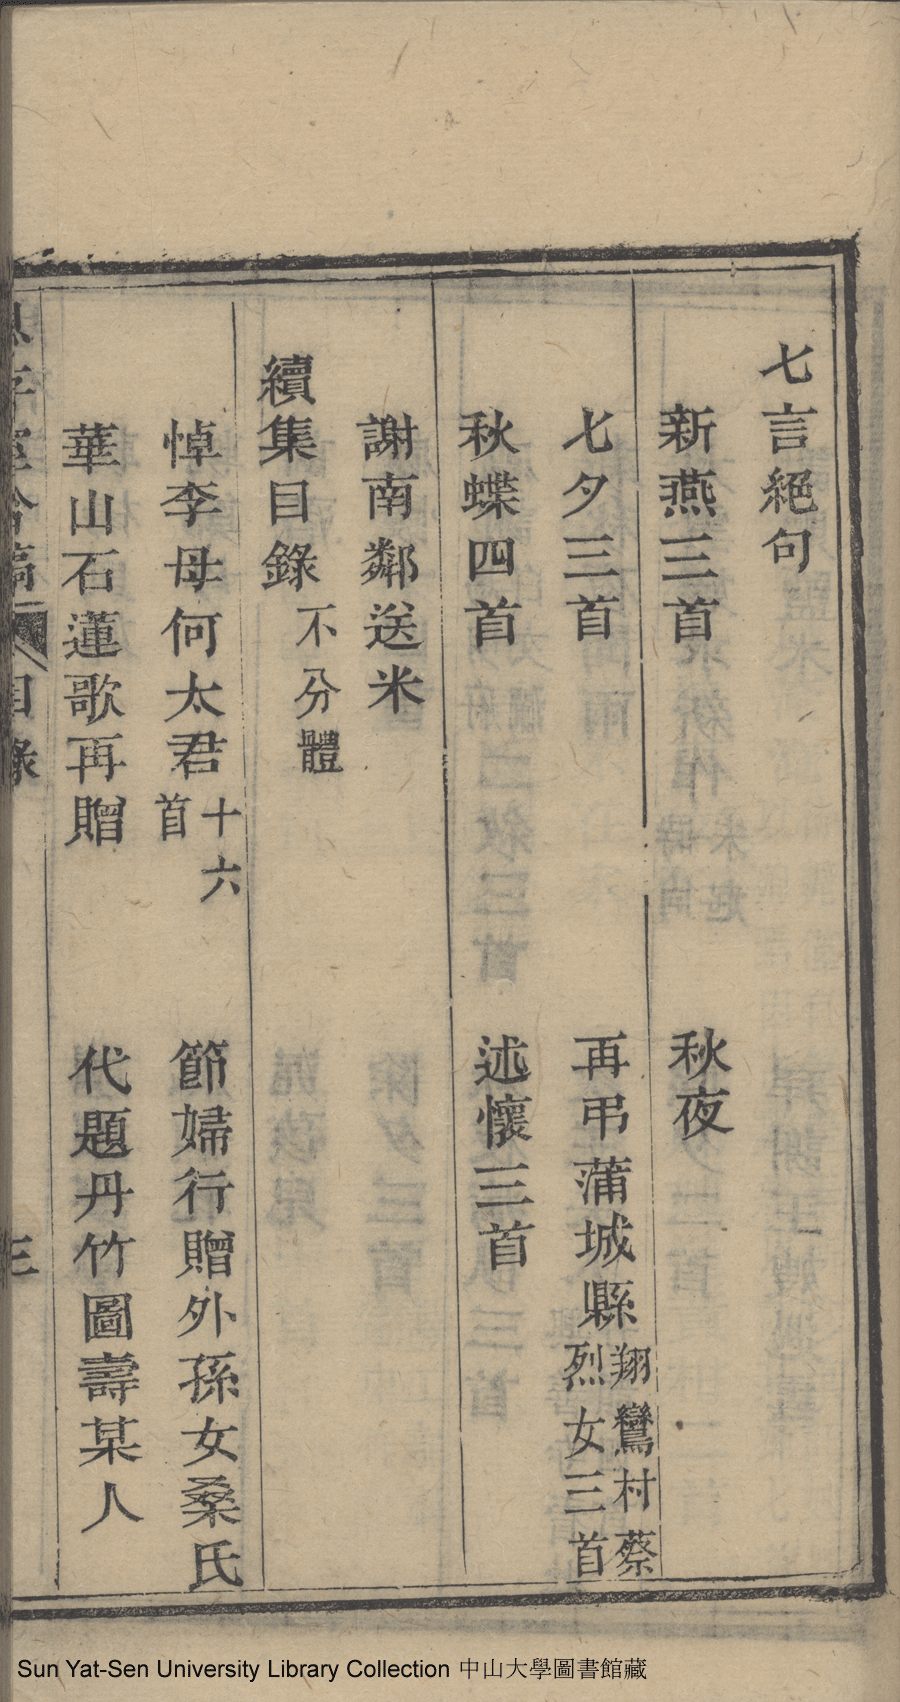 七言絕句
新燕三首　秋夜
七夕三首　再弔蒲城縣翔鸞村蔡烈女三首
秋蝶四首　述懷三首
謝南鄰送米
續集目錄不分體
悼李母何太君十六首　節婦行贈外孫女桑氏
華山石蓮歌再贈　代題丹竹圖壽某人
目錄
三
Sun Yat-Sen University Library Collection 中山大學圖書館藏